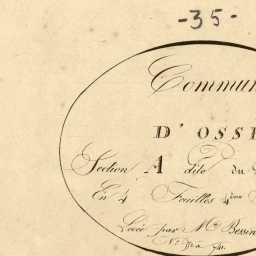 -35-
Commun
D'OSS
Section A dite du
En 4 Feuilles 4ème
Levée par Mr Bessin